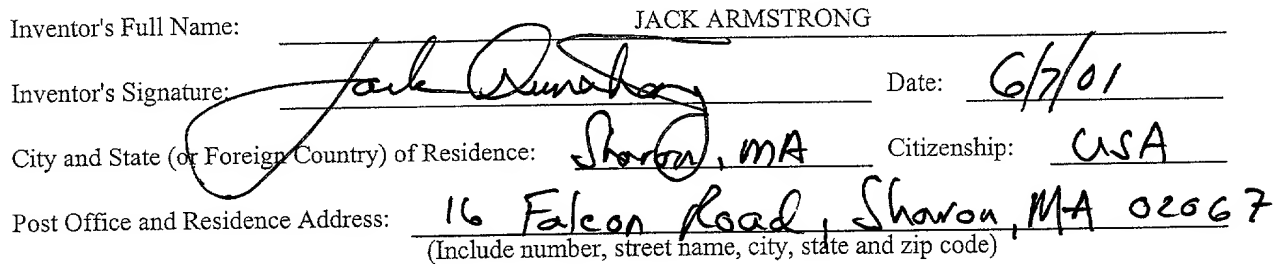 Inventor's Full Name: JACK ARMSTRONG
Inventor's Signature: Jack Armstrong Date: 6/7/01
City and State (or Foreign Country) of Residence: Sharon, MA Citizenship: USA
Post Office and Residence Address: 16 Falcon Road, Sharon, MA 02067
(Include number, street name, city, state and zip code)